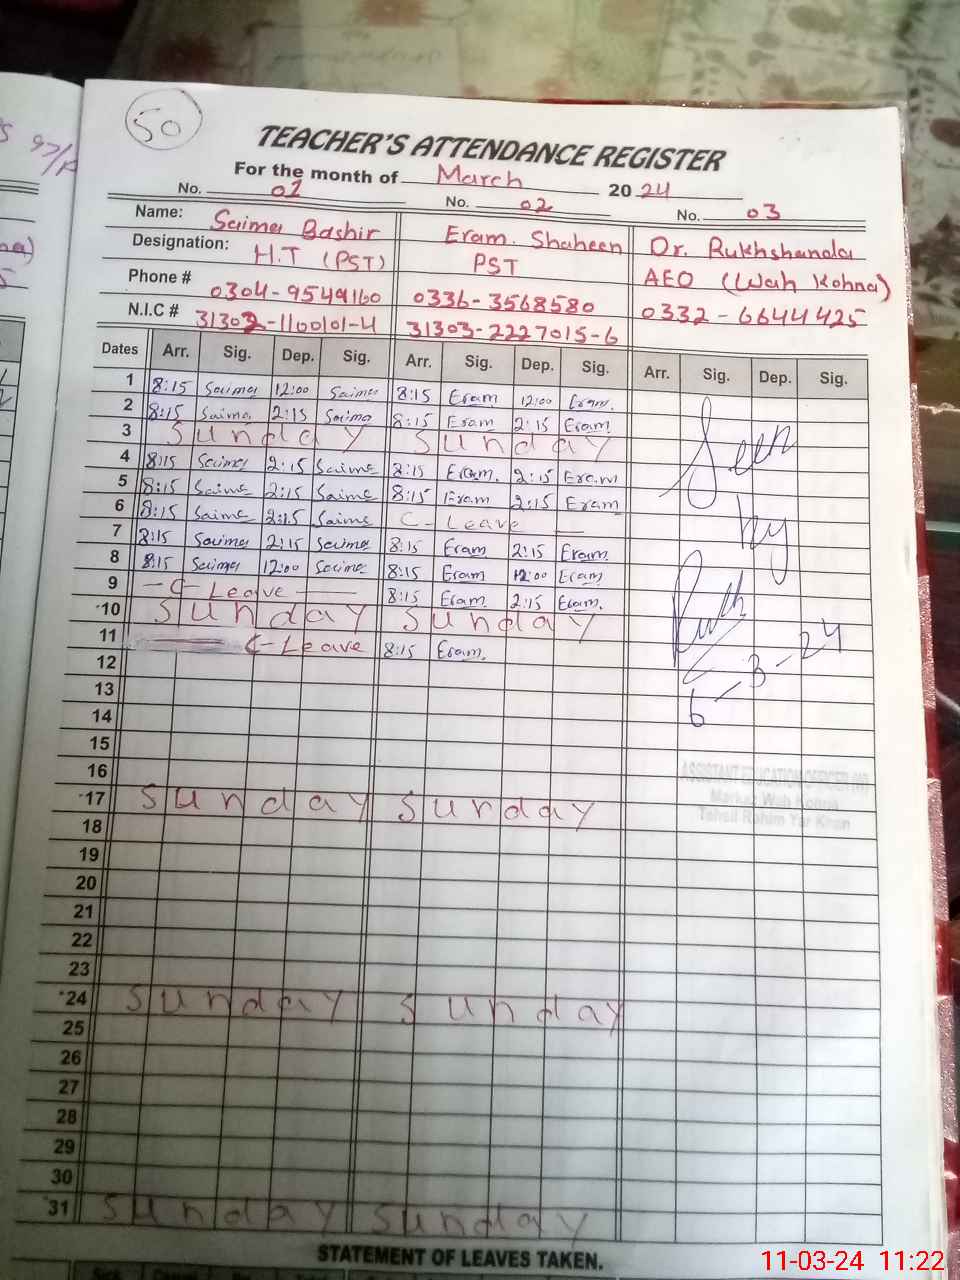 50
TEACHER'S ATTENDANCE REGISTER
For the month of March 2024
No. 01 No. 02 No. 03
Name: Saima Bashir Eram. Shaheen Dr. Rukhshanda
Designation: H.T (PST) PST AEO (Wah Kohna)
Phone # 0304-9549160 0336-3568580 0332-6644425
N.I.C # 31302-1100101-4 31303-2227015-6
Dates Arr. Sig. Dep. Sig. Arr. Sig. Dep. Sig. Arr. Sig. Dep. Sig.
1 8:15 Saima 12:00 Saima 8:15 Eram 12:00 Eram.
2 8:15 Saima 2:15 Saima 8:15 Eram 2:15 Eram
3 Sunday Sunday
4 8:15 Saima 2:15 Saima 8:15 Eram. 2:15 Eram
5 8:15 Saima 2:15 Saima 8:15 Eram 2:15 Eram
6 8:15 Saima 2:15 Saima C-Leave
7 8:15 Saima 2:15 Saima 8:15 Eram 2:15 Eram.
8 8:15 Saima 12:00 Saima 8:15 Eram 12:00 Eram
9 - C-Leave - 8:15 Eram. 2:15 Eram.
10 Sunday Sunday
11 C-Leave 8:15 Eram.
12
13
14
15
16
17 Sunday Sunday
18
19
20
21
22
23
24 Sunday Sunday
25
26
27
28
29
30
31 Sunday Sunday
Seen
by
6-3-24
ASSISTANT EDUCATION OFFICER
Markaz Wah Kohna
Tehsil Rahim Yar Khan
STATEMENT OF LEAVES TAKEN.
11-03-24 11:22